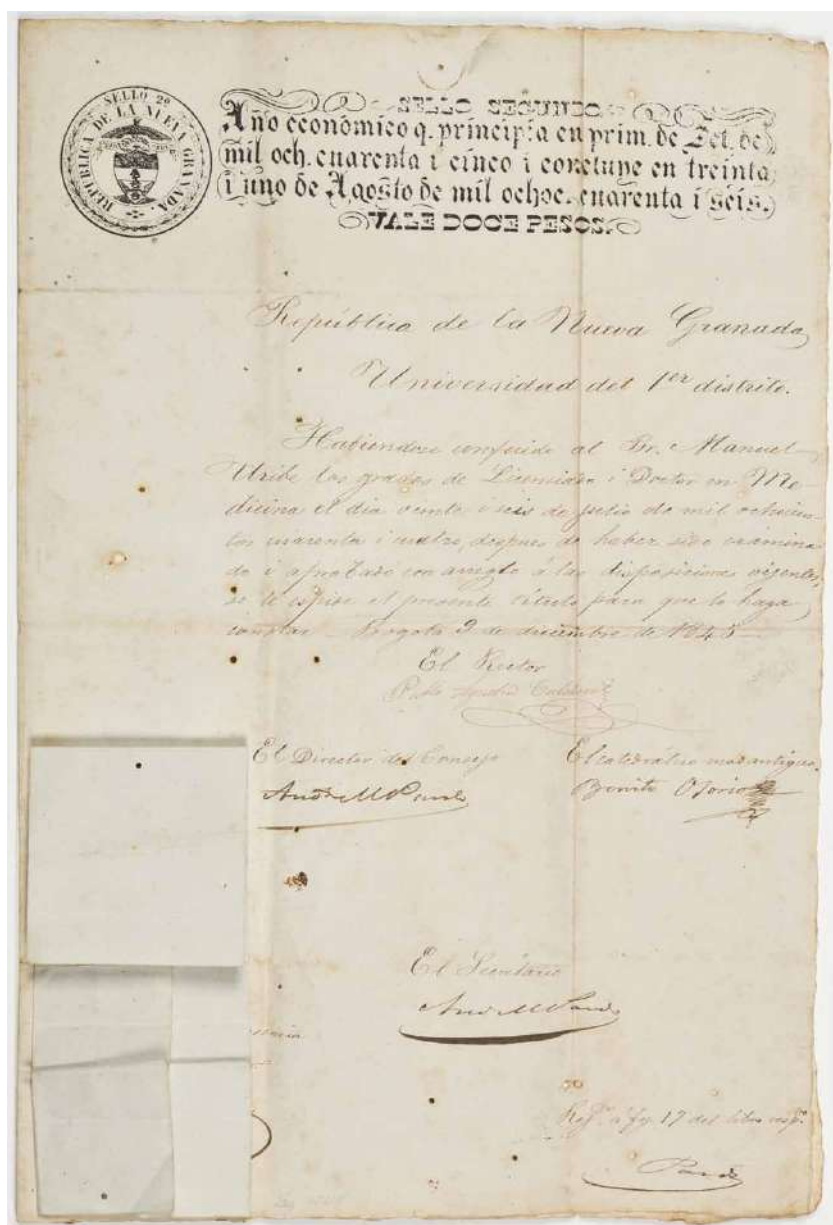 SELLO 2º
REPUBLICA DE LA NUEVA GRANADA
SELLO SEGUNDO
Año económico q. principia en prim. de Set. de
mil och. cuarenta i cinco i concluye en treinta
i uno de Agosto de mil ochoc. cuarenta i seis.
VALE DOCE PESOS.
República de la Nueva Granada
Universidad del 1er distrito.
Habiendose conferido al Br. Manuel
Uribe los grados de Licenciado i Doctor en Me-
dicina el dia veinte i seis de julio de mil ochocien-
tos cuarenta i cuatro, despues de haber sido examina-
do i aprobado con arreglo á las disposiciones vigentes,
se le espide el presente título para que lo haga
constar. Bogotá 9 de diciembre de 1845
El Rector
El Director del Consejo
El catedrático mas antiguo.
Benito Osorio
El Secretario
Rejº. a fs. 17 del libro resp.º
Pardo